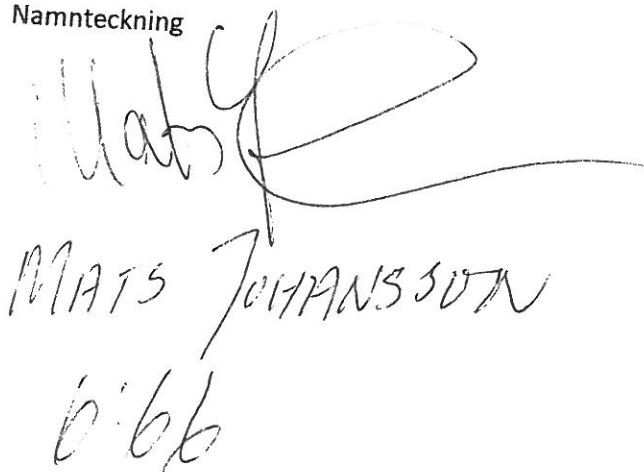 Namnteckning
Mats
MATS JOHANSSON
6:66